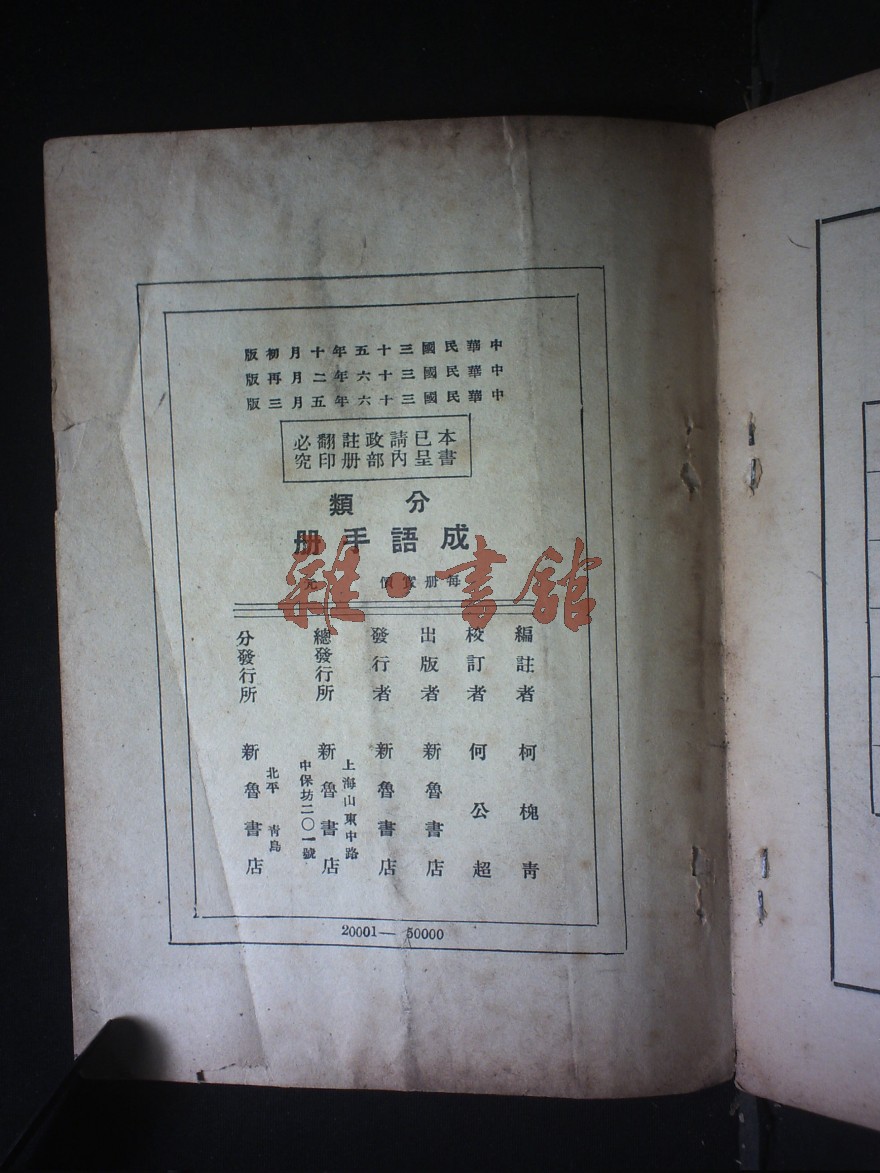 中華民國三十五年十月初版
中華民國三十六年二月再版
中華民國三十六年五月三版
本書已呈請內政部註册翻印必究
分類
成語手册
每册實價 元
編註者 柯槐青
校訂者 何公超
出版者 新魯書店
發行者 新魯書店
總發行所 新魯書店
上海山東中路
中保坊二〇一號
分發行所 新魯書店
北平 青島
20001—50000
雜·書館